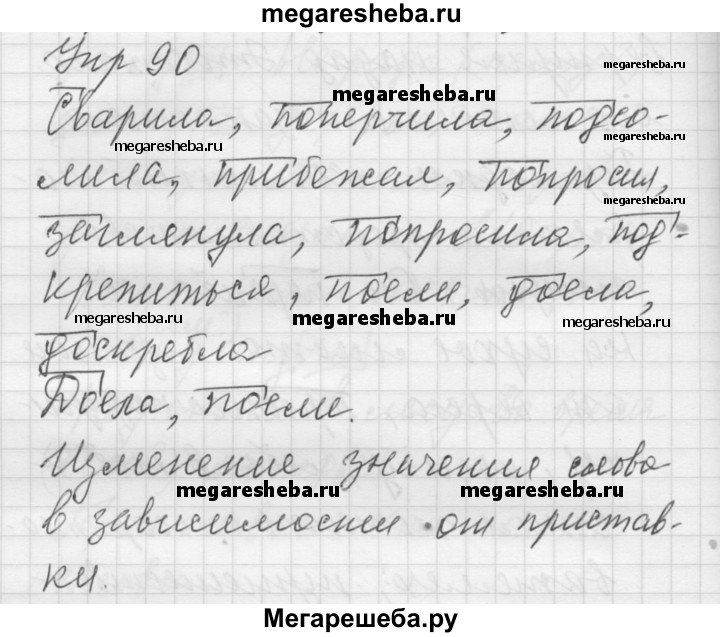 megaresheba.ru
Упр 90
megaresheba.ru
megaresheba.ru
Сварила, поперчила, подсо-
megaresheba.ru
megaresheba.ru
лила, прибежал, попросил,
megaresheba.ru
заглянула, попросила, под-
крепиться, поели, доела,
megaresheba.ru
megaresheba.ru
megaresheba.ru
доскребла
Доела, поели.
Изменение значения слова
megaresheba.ru
megaresheba.ru
в зависимости от пристав-
ки.
Мегарешеба.ру